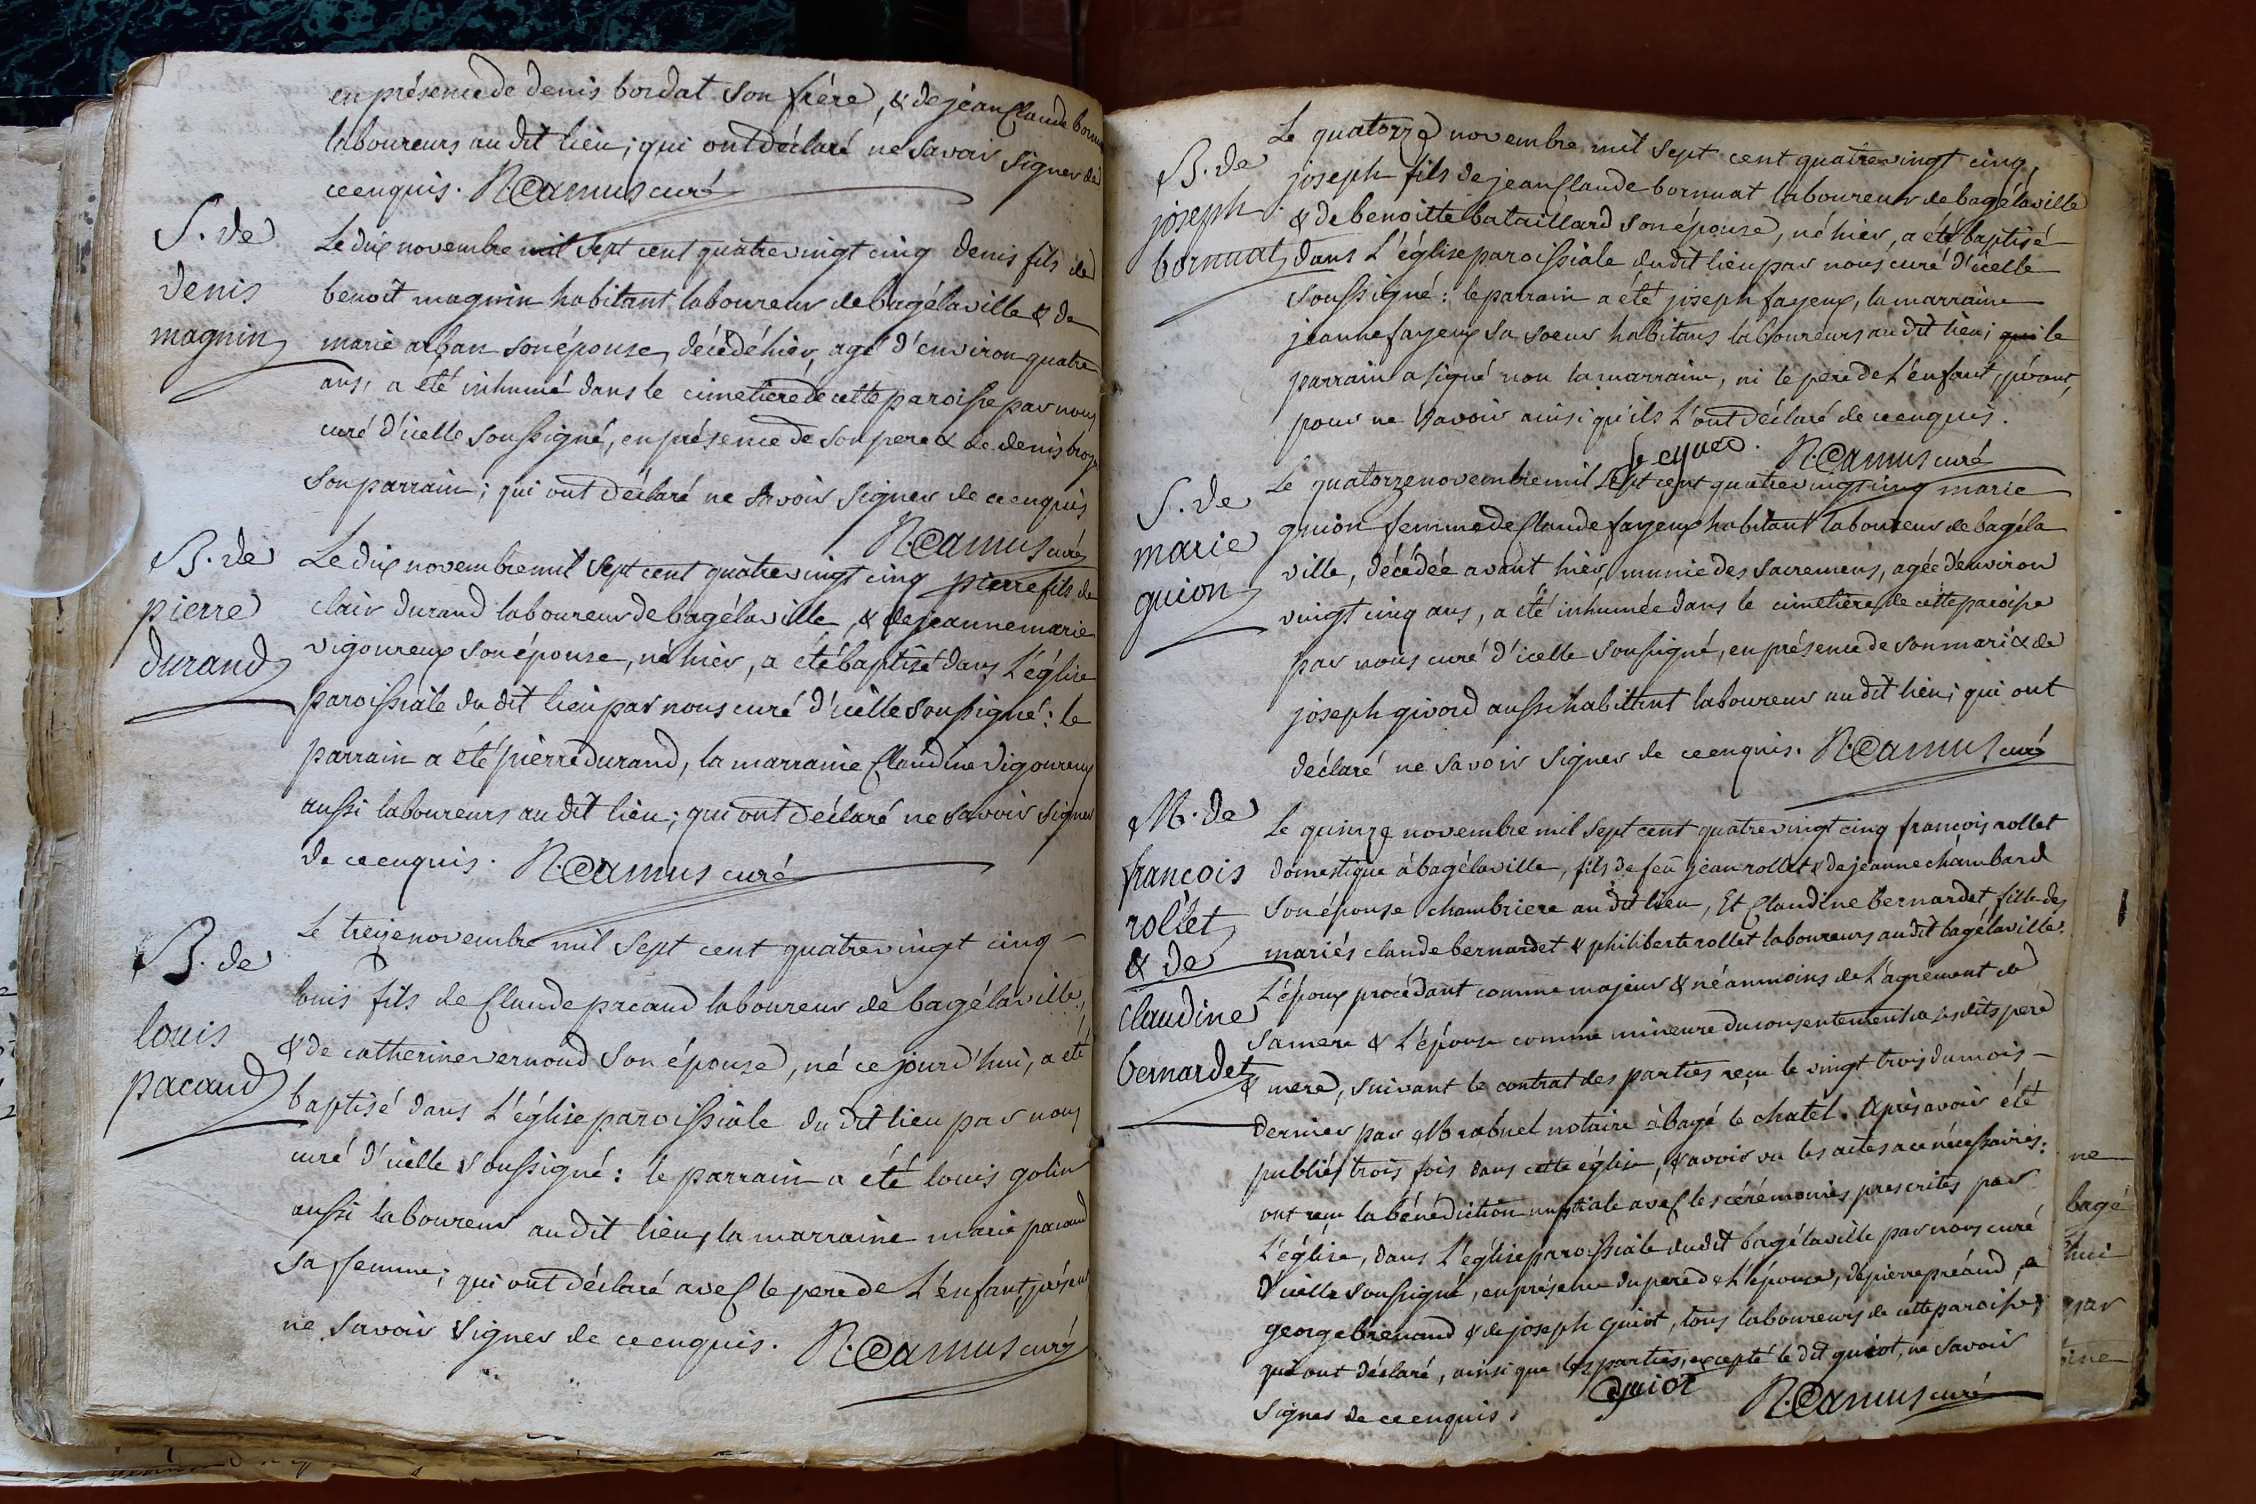 en présence de denis bordat son frére, & de jean Claude
laboureurs au dit lieu; qui ont déclaré ne savoir signer de
ce enquis. N. Camus curé
S. de
denis
magnin
Le dix novembre mil sept cent quatre vingt cinq denis fils de
benoit magnin habitant laboureur de bagé la ville & de
marie alban son épouse, décédé hier, agé d'environ quatre
ans, a été inhumé dans le cimetiere de cette paroisse par nous
curé d'icelle soussigné, en présence de son pere & de denis
son parrain; qui ont déclaré ne savoir signer de ce enquis
N. Camus curé
B. de
pierre
durand
Le dix novembre mil sept cent quatre vingt cinq pierre fils de
clair durand laboureur de bagé la ville, & de jeanne marie
vigoureux son épouse, né hier, a été baptisé dans L'église
paroissiale du dit lieu par nous curé d'icelle soussigné: le
parrain a été pierre durand, la marraine Claudine Vigoureux
aussi laboureurs au dit lieu; qui ont déclaré ne savoir signer
de ce enquis. N. Camus curé
B. de
louis
pacaud
Le treize novembre mil sept cent quatre vingt cinq
louis fils de Claude pacaud laboureur de bagé la ville,
& de catherine vernoud son épouse, né ce jourd'hui, a été
baptisé dans L'église paroissiale du dit lieu par nous
curé d'icelle soussigné: le parrain a été louis golin
aussi laboureur au dit lieu, la marraine marie pacaud
sa femme; qui ont déclaré avec le pere de L'enfant présent
ne savoir signer de ce enquis. N. Camus curé
B. de
joseph
bornuat
Le quatorze novembre mil sept cent quatre vingt cinq
joseph fils de jean Claude bornuat laboureur de bagé la ville
& de benoitte bataillard son épouse, né hier, a été baptisé
dans L'église paroissiale du dit lieu par nous curé d'icelle
soussigné: le parrain a été joseph fayeux, la marraine
jeanne fayeux sa soeur habitans laboureurs au dit lieu; qui le
parrain a signé non la marraine, ni le pere de L'enfant, présent,
pour ne savoir ainsi qu'ils L'ont déclaré de ce enquis.
N. Camus curé
S. de
marie
guion
Le quatorze novembre mil sept cent quatre vingt cinq marie
guion femme de Claude fayeux habitant laboureur de bagé la
ville, décédée avant hier, munie des sacremens, agée d'environ
vingt cinq ans, a été inhumée dans le cimetiere de cette paroisse
par nous curé d'icelle soussigné, en présence de son mari & de
joseph givord aussi habitant laboureur au dit lieu; qui ont
déclaré ne savoir signer de ce enquis. N. Camus curé
M. de
françois
rollet
& de
claudine
bernardet
Le quinze novembre mil sept cent quatre vingt cinq françois rollet
domestique à bagé la ville, fils de feu jean rollet & de jeanne chambard
son épouse chambriere au dit lieu, Et Claudine bernardet fille des
mariés claude bernardet & philiberte rollet laboureurs au dit bagé la ville.
L'époux procédant comme majeur & néanmoins de L'agrément de
sa mere & L'épouse comme mineure du consentement de sesdits pere
& mere, suivant le contrat des parties reçu le vingt trois du mois
dernier par Mr rabuel notaire à bagé le chatel. Après avoir été
publiés trois fois dans cette église, & avoir vu les actes a ce nécessaires:
ont reçu la bénédiction nuptiale avec les cérémonies prescrites par
L'église, dans L'église paroissiale du dit bagé la ville par nous curé
d'icelle soussigné, en présence du pere de L'épouse, de pierre préaud, de
george brenand & de joseph guiot, tous laboureurs de cette paroisse;
qui ont déclaré, ainsi que les parties, excepté le dit guiot, ne savoir
signer de ce enquis. Guiot N. Camus curé
ne
bagé
hui
par